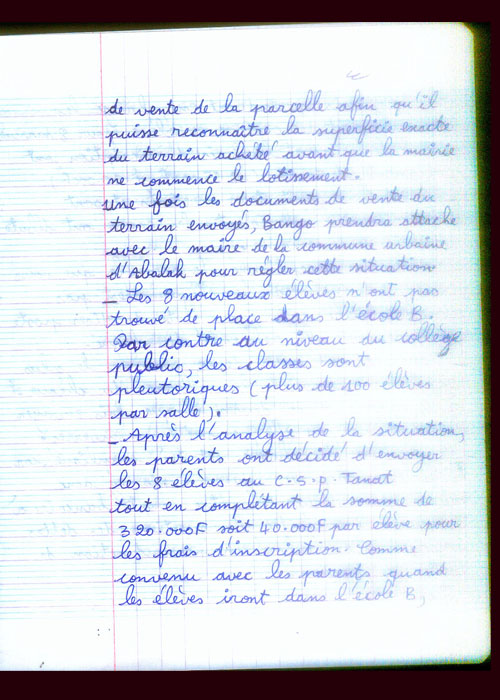 de vente de la parcelle afin qu'il
puisse reconnaître la superficie exacte
du terrain acheté avant que la mairie
ne commence le lotissement.
une fois les documents de vente du
terrain envoyés, Bango prendra attache
avec le maire de la commune urbaine
d'Abalak pour régler cette situation
- Les 8 nouveaux élèves n'ont pas
trouvé de place dans l'école B.
Par contre au niveau du collège
public, les classes sont
pleutoriques (plus de 100 élèves
par salle).
- Après l'analyse de la situation,
les parents ont décidé d'envoyer
les 8 élèves au C.S.P. Tanat
tout en complétant la somme de
320.000F soit 40.000F par élève pour
les frais d'inscription. Comme
convenu avec les parents quand
les élèves iront dans l'école B,